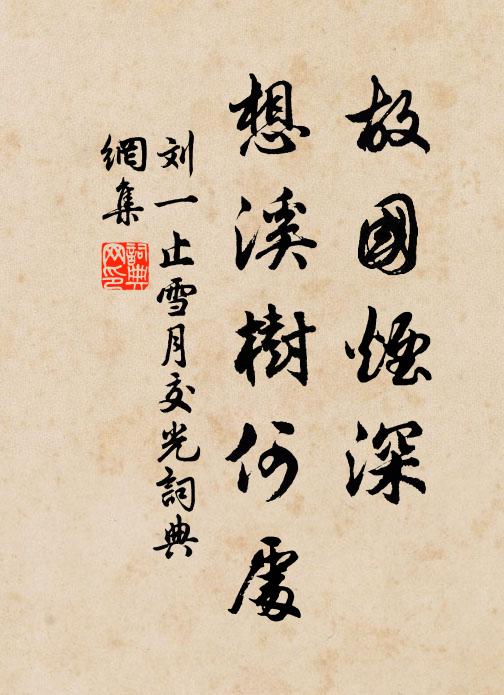 故國煙深
想溪樹何處
刘一止雪月交光詞典
網集
詞典
网印